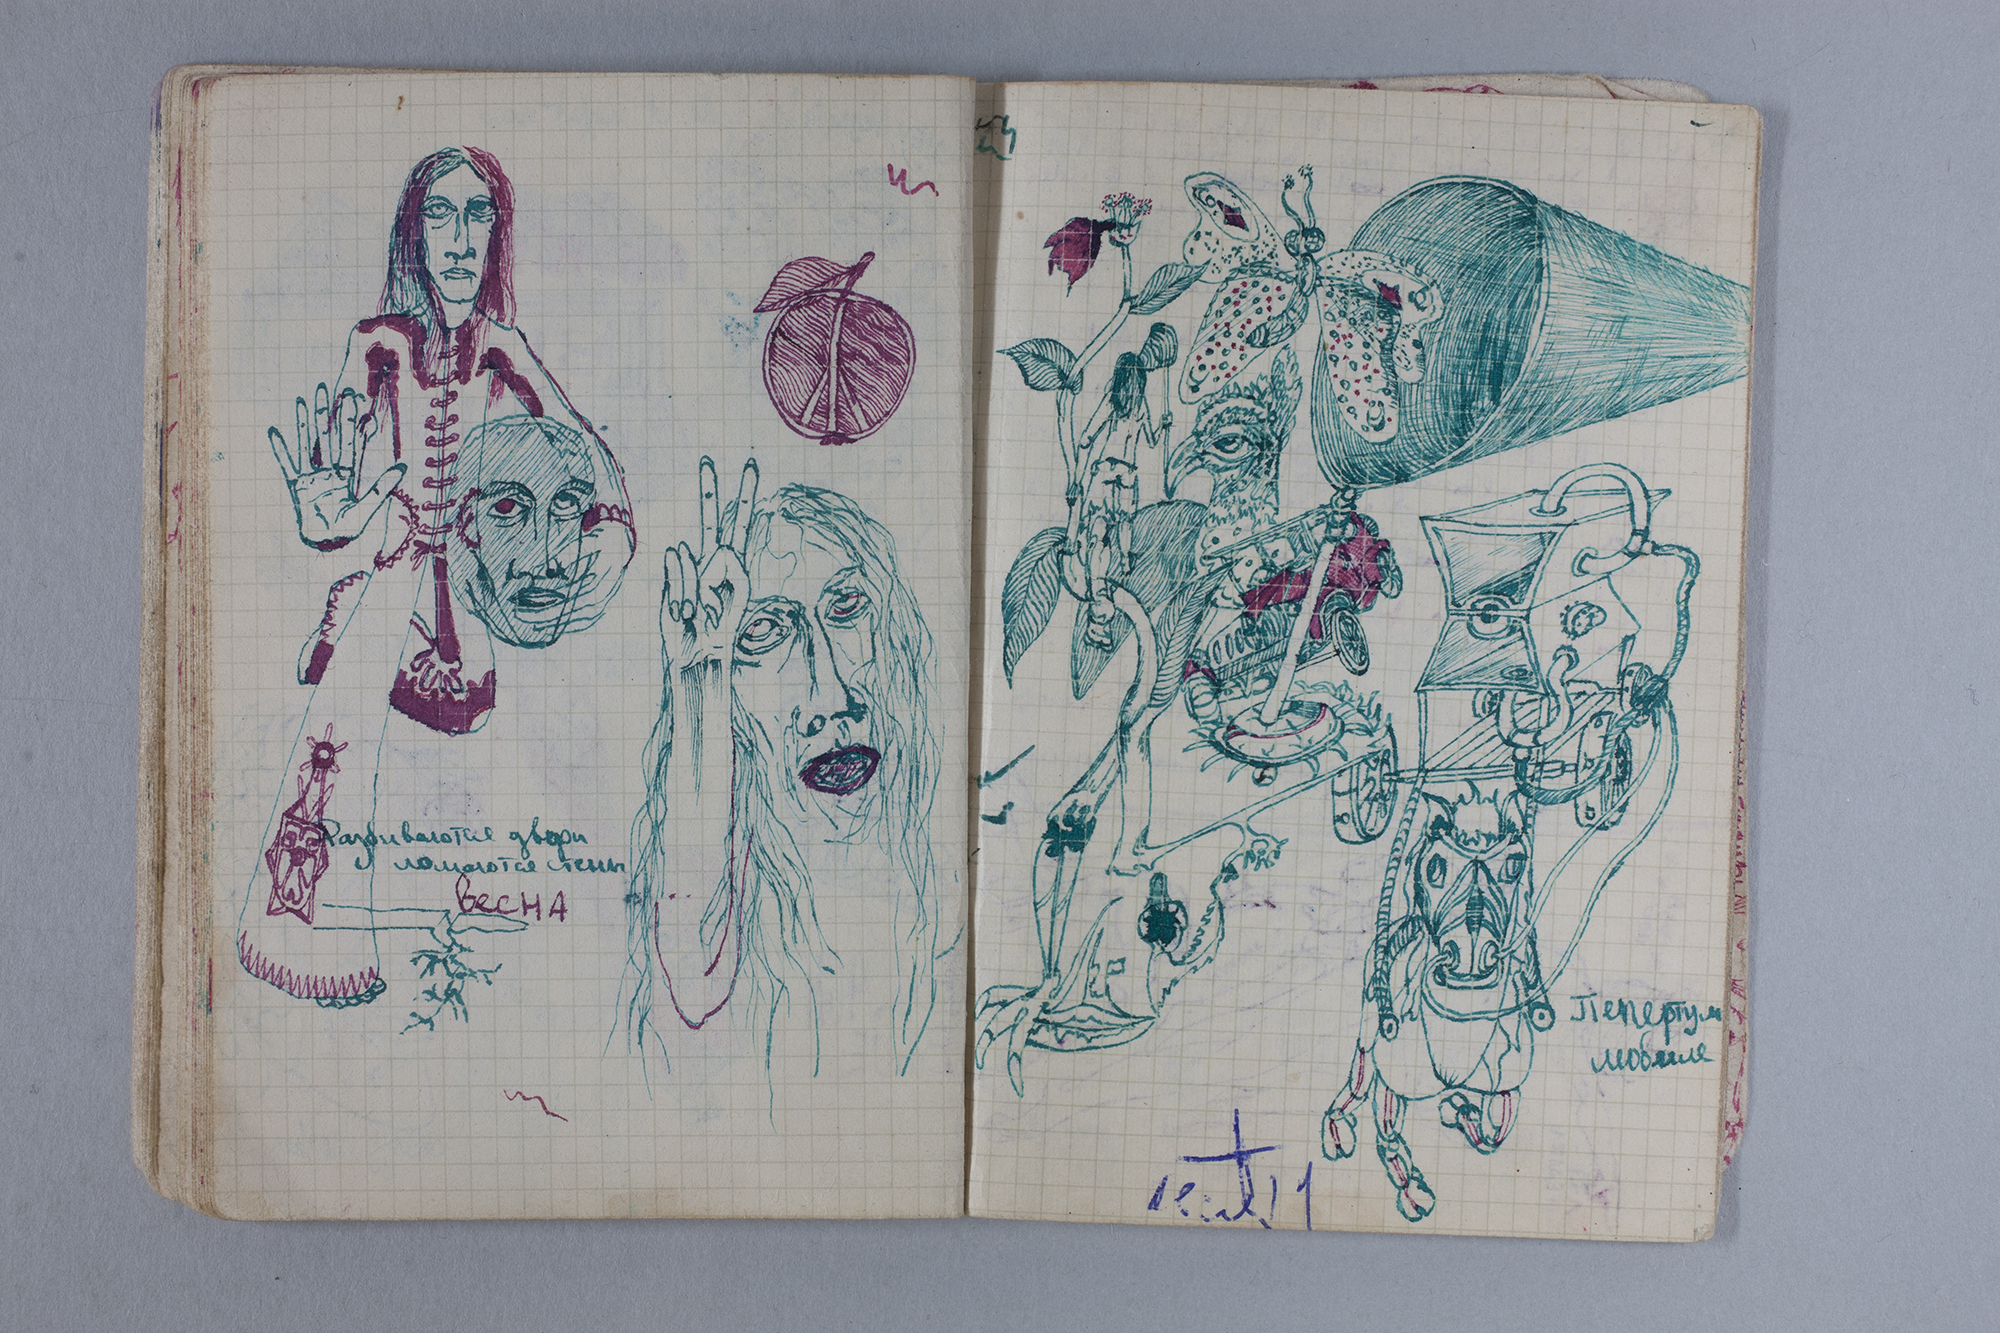 Разбиваются двери
ломаются стены
весна
Пепертум
мобиле